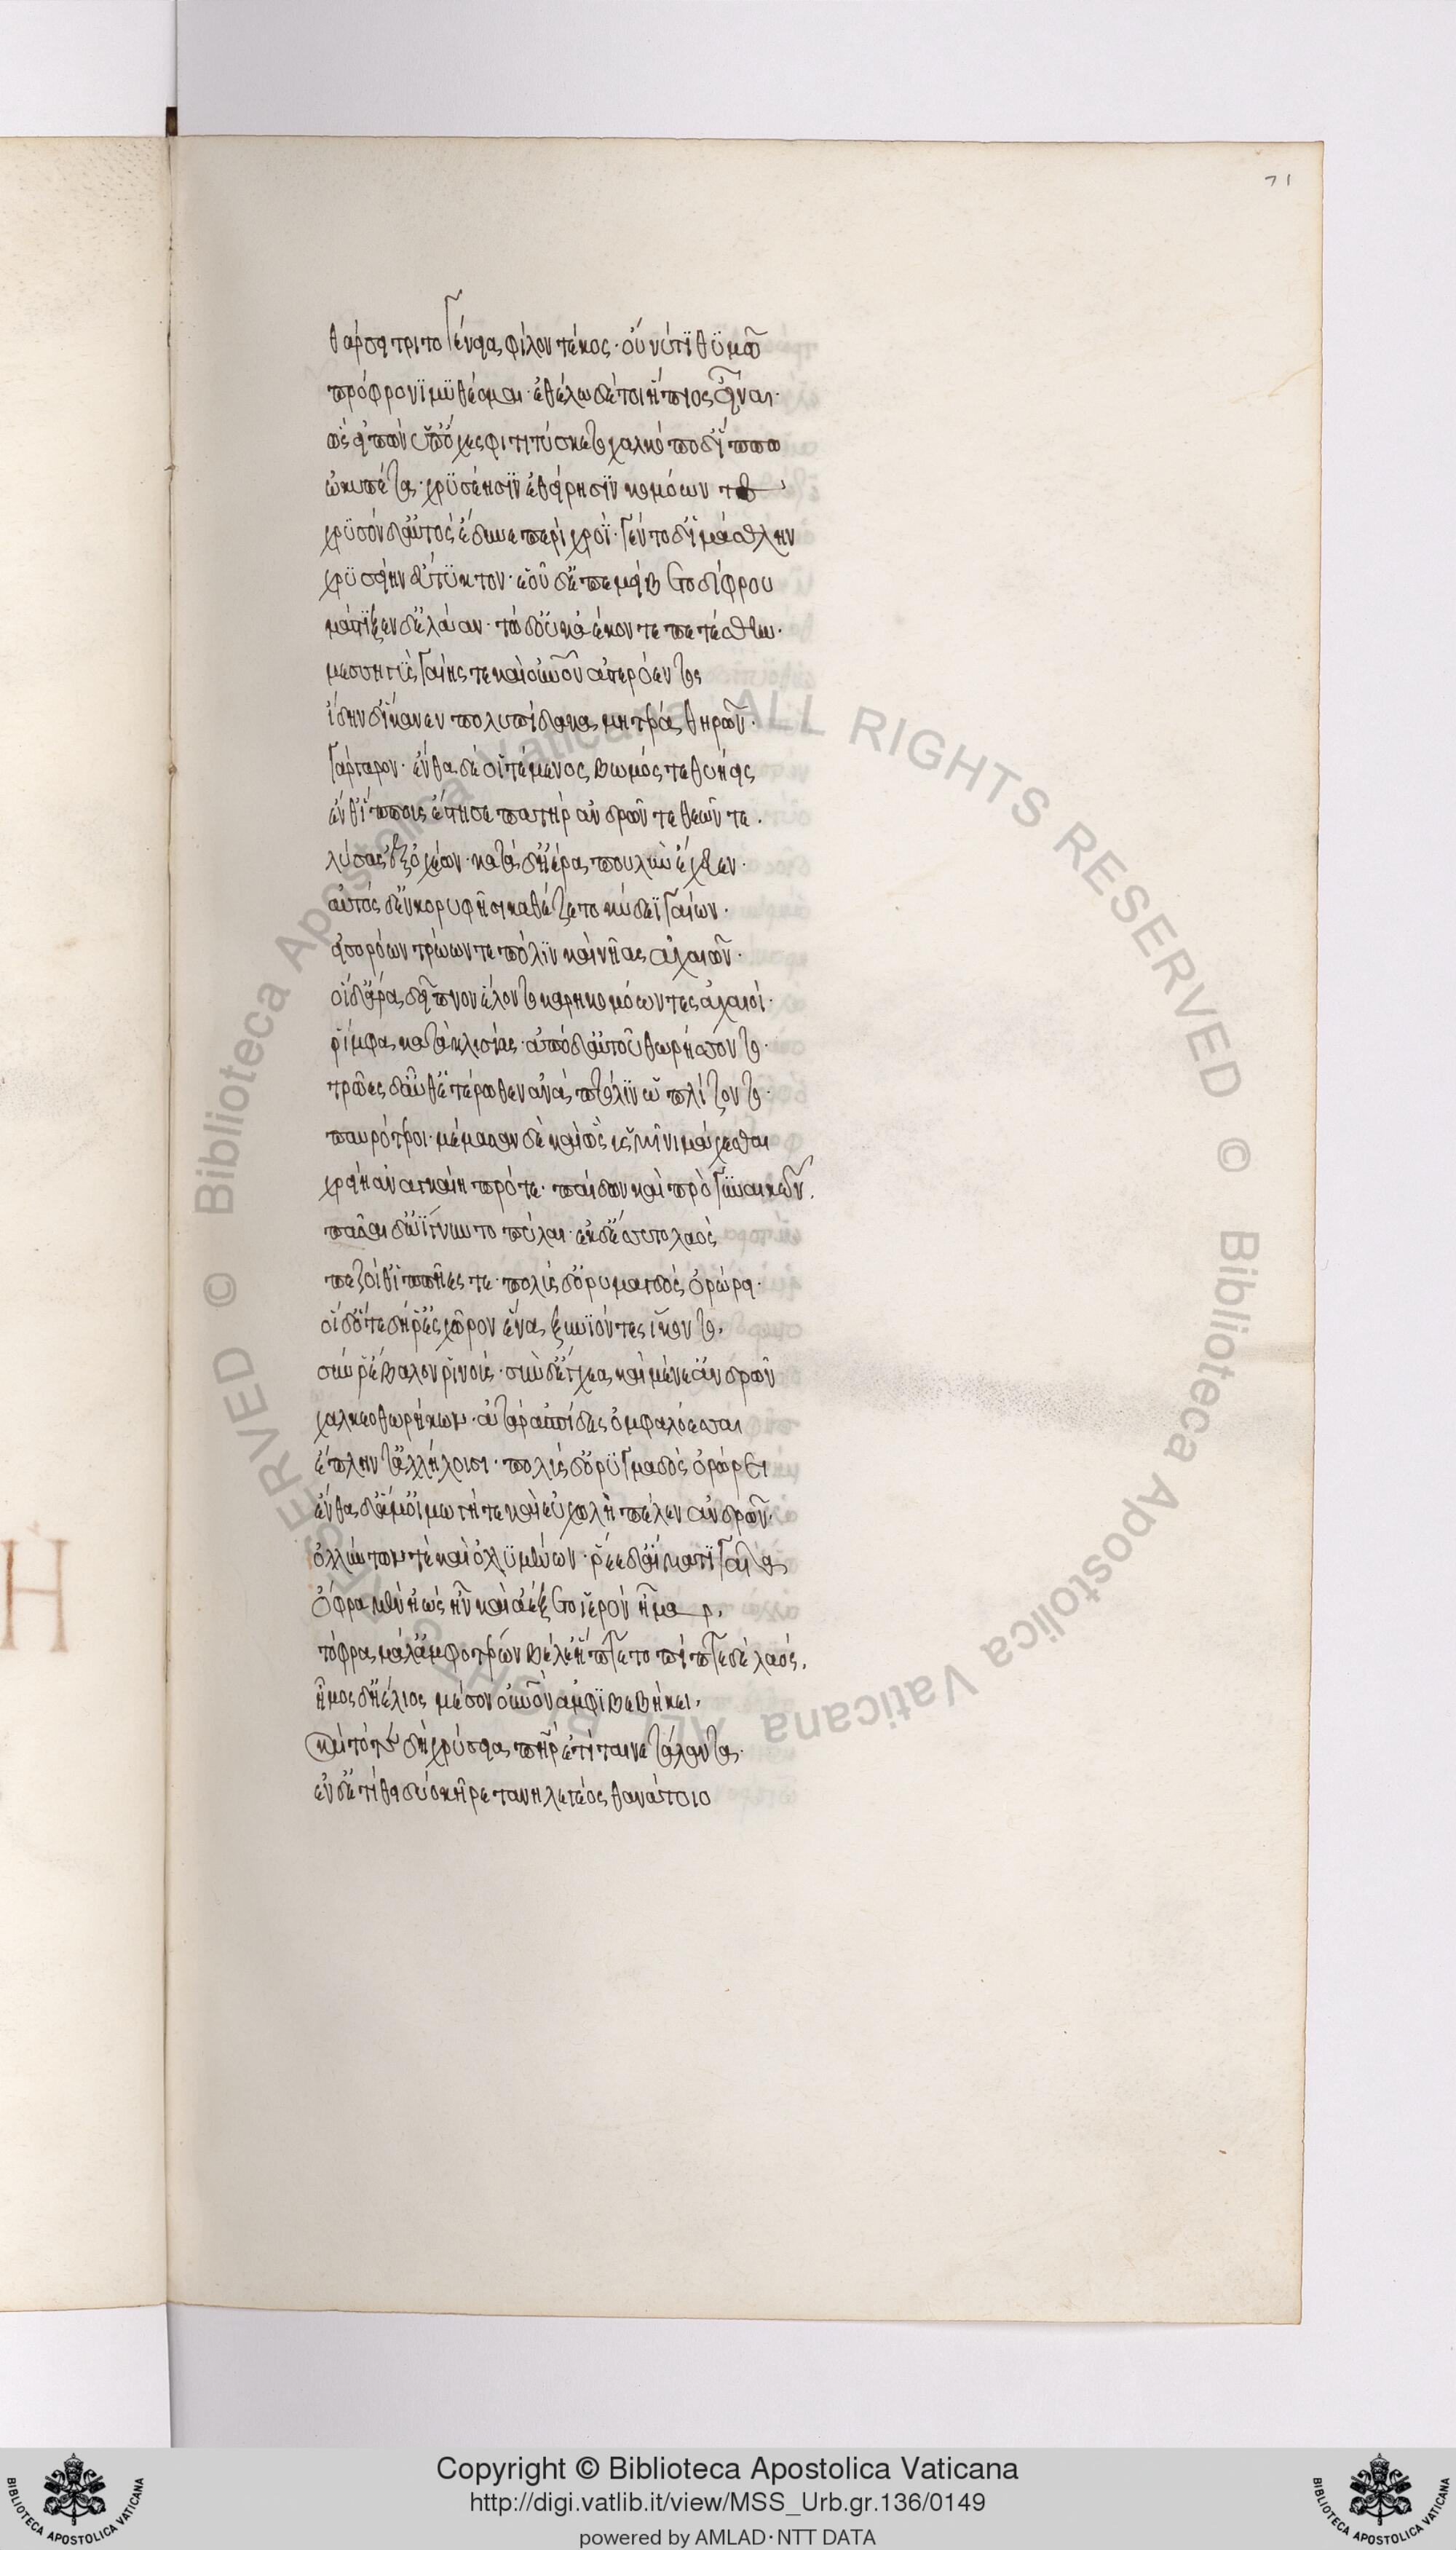 71
θάρσει τριτογένεια φίλον τέκος· οὔ νύ τϊ θϋμῶ
πρόφρονϊ μϋθέομαι· ἐθέλω δέ τοι ἤπιος εἶναι·
ὣς εἰπὼν ὑπ' ὄχεσφι τιτύσκετο χαλκόποδ' ἵππω
ὠκυπέτα· χρϋσέησϊν ἐθείρησϊν κομόωντε
χρϋσὸν δ' αὐτὸς ἔδυνε περὶ χροΐ· γέντο δ' ἱμάσθλην
χρϋσείην εὔτϋκτον· ἑοῦ δ' ἐπεμβήσετο δίφρου
μάστϊξεν δ' ἐλάαν· τὼ δ' οὐκ ἀέκοντε πετέσθην·
μεσσηγῢς γαίης τε καὶ οὐρανοῦ ἀστερόεντος
ἴδην δ' ἵκανεν πολυπίδακα μητέρα θηρῶν·
γάργαρον· ἔνθα δέ οἱ τέμενος βωμός τε θυήεις
ἔνθ' ἵππους ἔστησε πατὴρ ἀνδρῶν τε θεῶν τε.
λύσας ἐξ ὀχέων· κατὰ δ' ἠέρα πουλὺν ἔχευεν·
αὐτὸς δ' ἐν κορυφῆσι καθέζετο κύδεϊ γαίων·
εἰσορόων τρώων τε πόλϊν καὶ νῆας ἀχαιῶν·
οἱ δ' ἄρα δεῖπνον ἕλοντο καρηκομόωντες ἀχαιοί·
ῥίμφα κατὰ κλισίας· ἀπὸ δ' αὐτοῦ θωρήσσοντο·
τρῶες δ' αὖθ' ἑτέρωθεν ἀνὰ πτόλϊν ὡπλίζοντο·
παυρότεροι· μέμασαν δὲ καὶ ὣς ὑσμῖνι μάχεσθαι
χρειῆ ἀναγκαίη πρό τε παίδων καὶ πρὸ γϋναικῶν.
πᾶσαι δ' ὠΐγνυντο πύλαι· ἐκ δ' ἔσσυτο λαὸς
πεζοί θ' ἱππῆες τε· πολὺς δ' ὀρυμαγδὸς ὀρώρει·
οἱ δ' ὅτε δή ῥ' ἐς χῶρον ἕνα ξυνϊόντες ἵκοντο.
σύν ῥ' ἔβαλον ῥϊνούς· σὺν δ' ἔγχεα καὶ μένε' ἀνδρῶν
χαλκεοθωρήκων· ἀτὰρ ἀσπίδες ὀμφαλόεσσαι
ἔπληντ' ἀλλήλοισι· πολὺς δ' ὀρϋμαγδὸς ὀρώρει
ἔνθα δ' ἅμ' οἰμωγή τε καὶ εὐχωλὴ πέλεν ἀνδρῶν·
ὀλλύντων τὲ καὶ ὀλλϋμένων· ῥέε δ' αἵματϊ γαῖα
ὄφρα μὲν ἠὼς ἦν καὶ ἀέξετο ἱερὸν ἦμαρ.
τόφρα μάλ' ἀμφοτέρων βέλε' ἥπτετο πίπτε δὲ λαός.
ἦμος δ' ἠέλιος μέσον οὐρανὸν ἀμφϊβεβήκει.
καὶ τότε δὴ χρύσεια πατὴρ ἐτίταινε τάλαντα·
ἐν δ' ἐτίθει δύο κῆρε τανηλεγέος θανάτοιο
Η
Biblioteca Apostolica Vaticana ALL RIGHTS RESERVED © Biblioteca Apostolica Vaticana ALL RIGHTS RESERVED ©
Copyright © Biblioteca Apostolica Vaticana
http://digi.vatlib.it/view/MSS_Urb.gr.136/0149
powered by AMLAD·NTT DATA
BIBLIOTECA APOSTOLICA VATICANA
BIBLIOTECA APOSTOLICA VATICANA